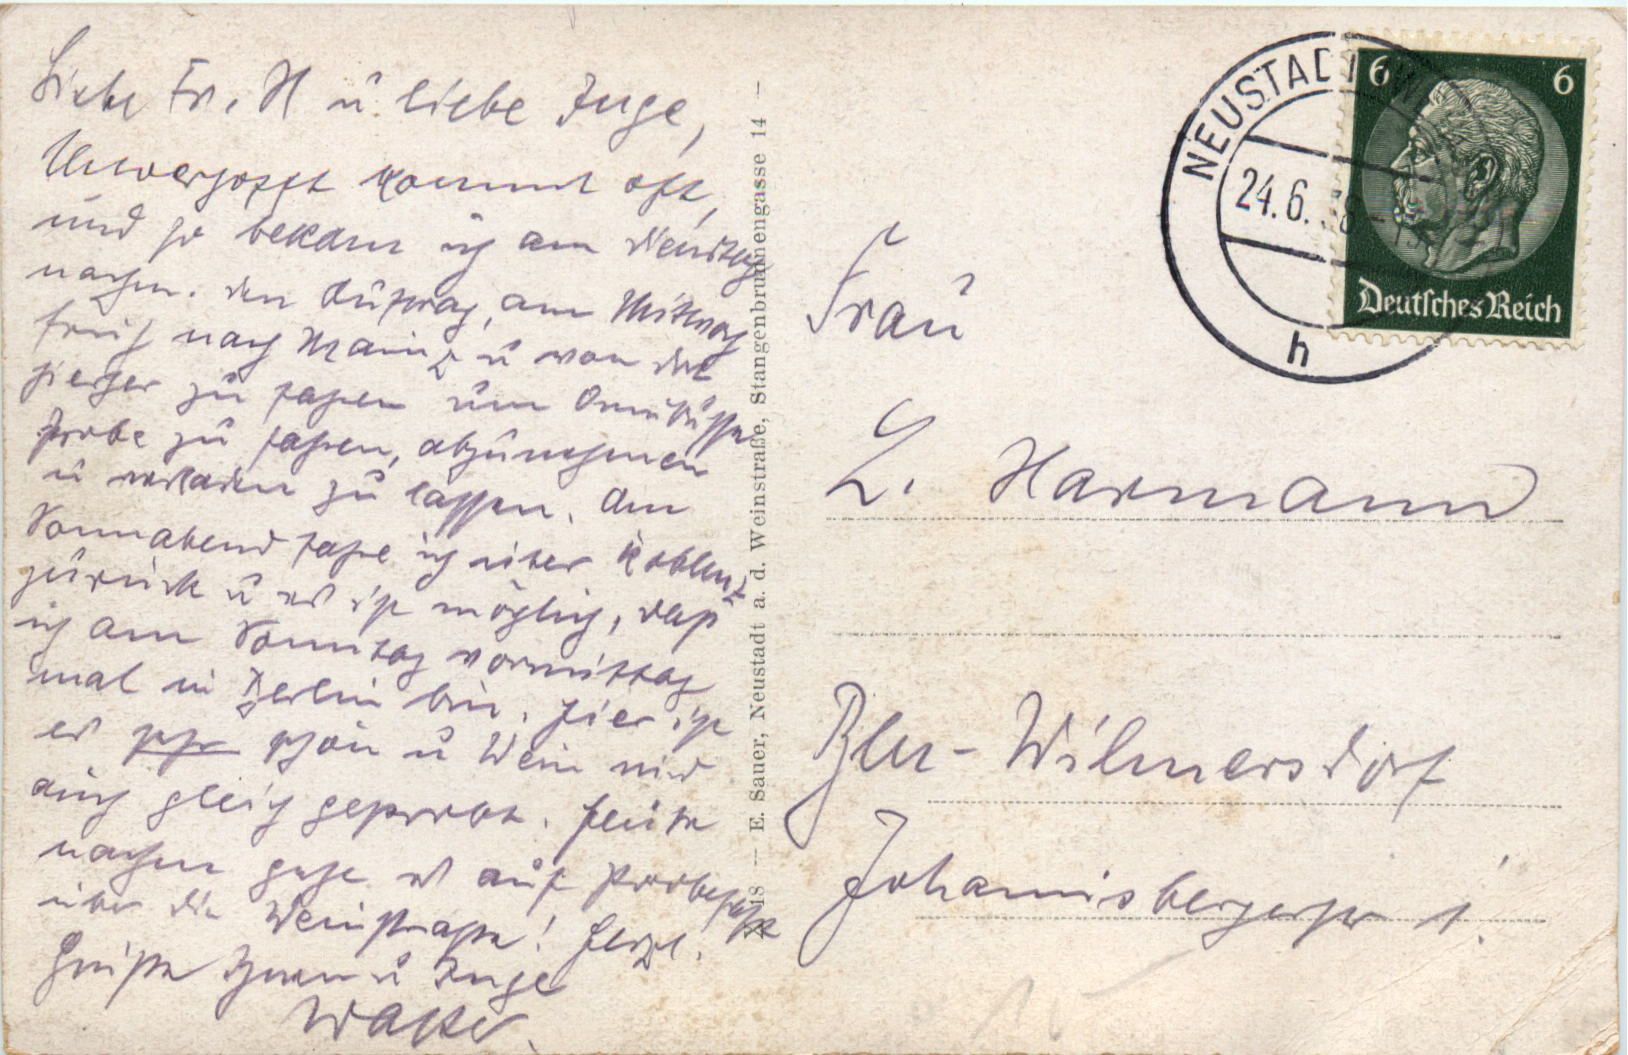 Liebe Fr. H ü liebe Inge,
Unverhofft kommt oft,
und so bekam ich am Dienstag
nachm. den Auftrag, am Mittwoch
früh nach Mainz ü von dort
hierher zu fahren um Omnibusse
Probe zu fahren, abzunehmen
ü verladen zu lassen. Am
Sonnabend fahre ich über Koblenz
zurück ü es ist möglich, dass
ich am Sonntag vormittag
mal in Berlin bin. Hier ist
es schön ü Wein wird
auch gleich geprobt. Heute
nachm gehe es auf Probefahrt
über die Weinstrasse! Herzl.
Grüsse Ihnen ü Inge
Walter.
E. Sauer, Neustadt a. d. Weinstraße, Stangenbrunnengasse 14 —
NEUSTADT
24.6.
h
6 6
Deutsches Reich
Frau
L. Harmann
Bln-Wilmersdorf
Johannisbergerstr 1!